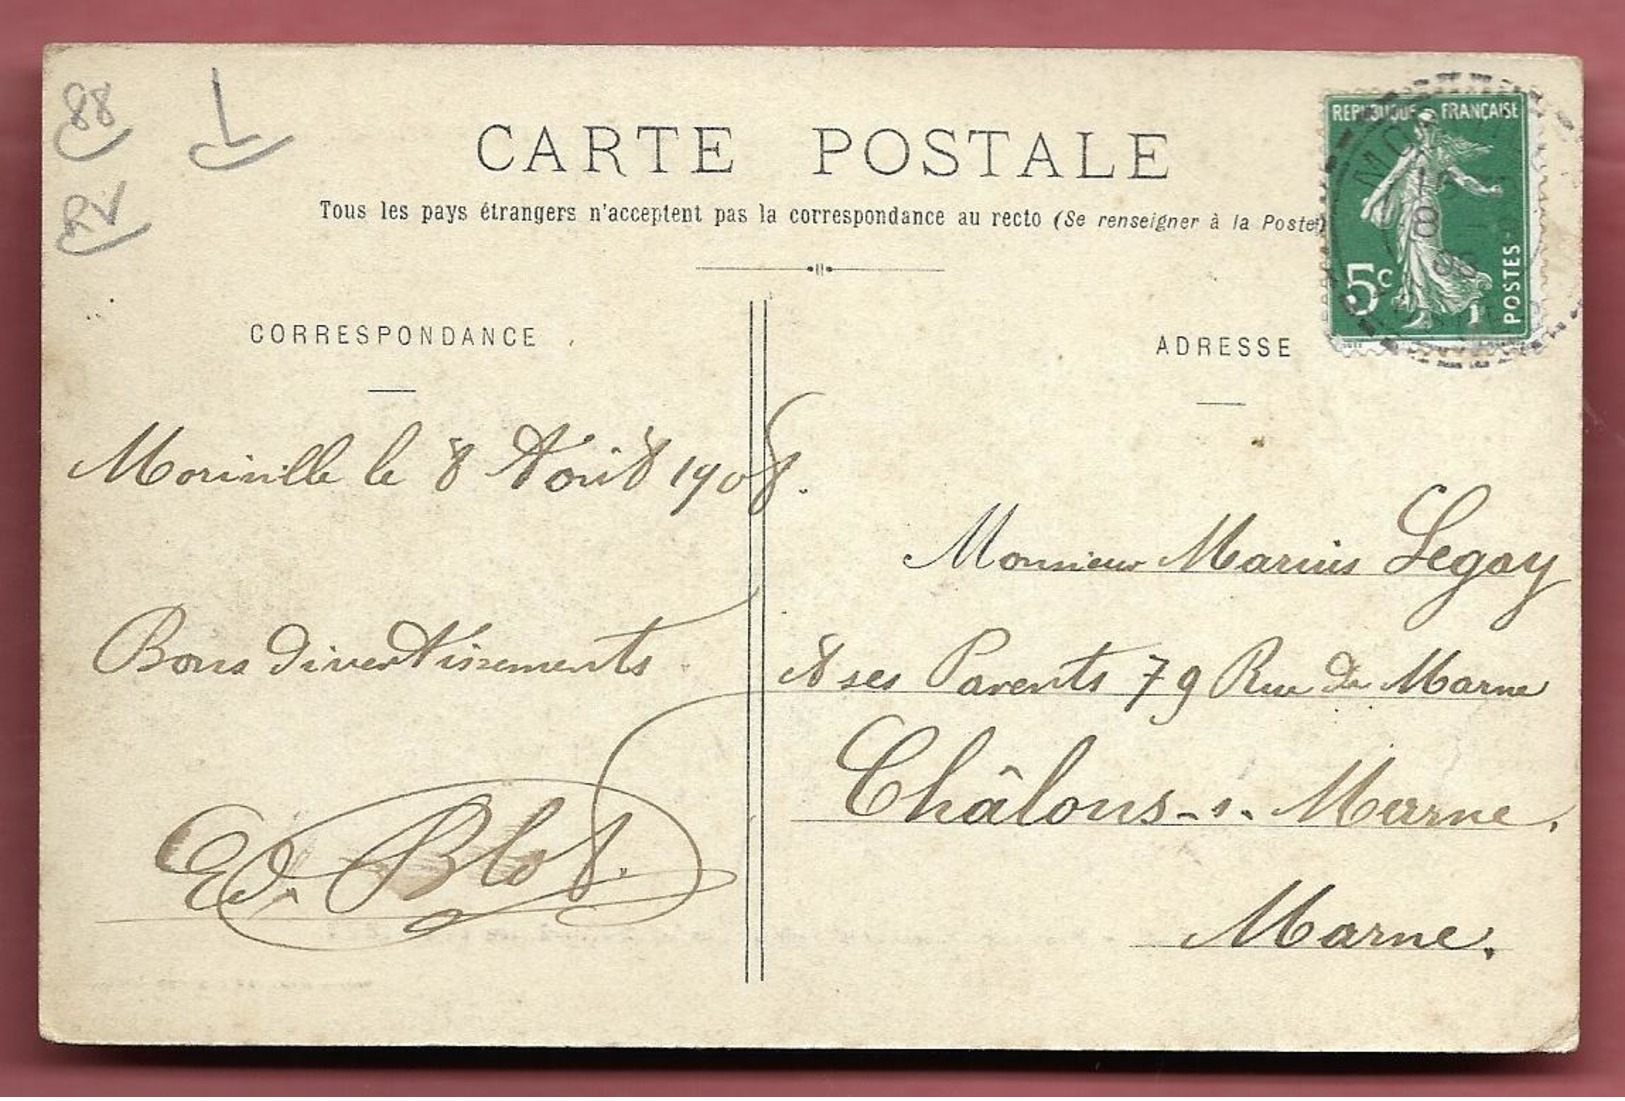 88
L
RV
CARTE POSTALE
Tous les pays étrangers n'acceptent pas la correspondance au recto (Se renseigner à la Poste)
REPUBLIQUE FRANÇAISE
5c
POSTES
CORRESPONDANCE
Moriville le 8 Août 1908.
Bons divertissements
Ed. Blot.
ADRESSE
Monsieur Marius Legay
& ses Parents 79 Rue de Marne
Châlons-s. Marne.
Marne.